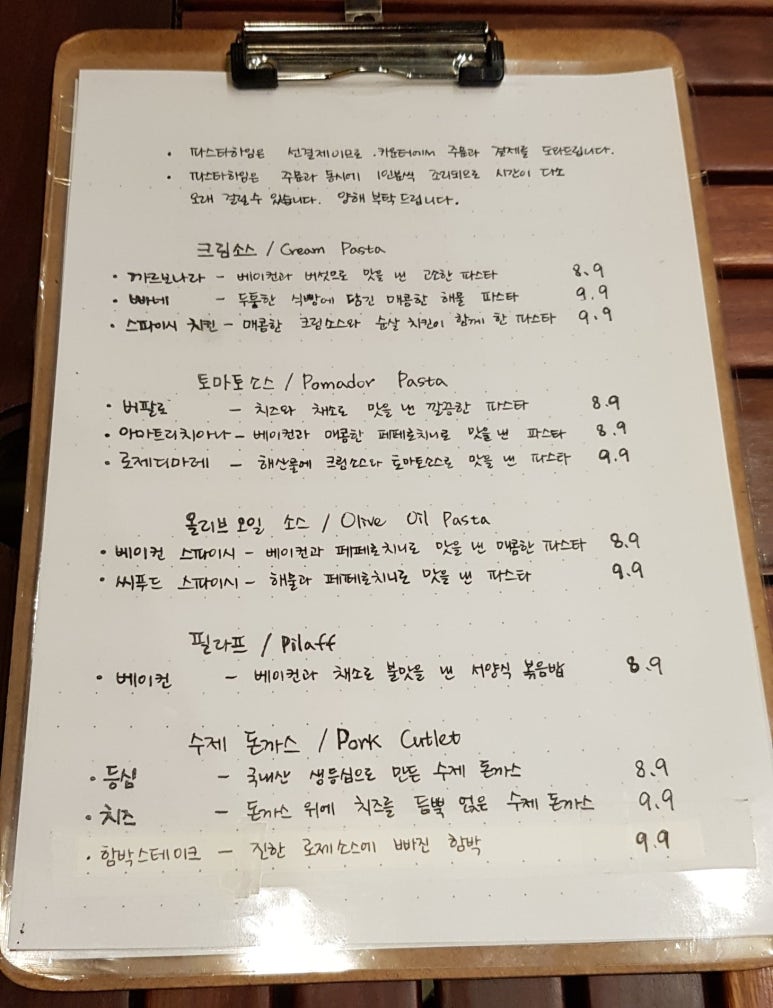 • 파스타하임은 선결제이므로 카운터에서 주문과 결제를 도와드립니다.
• 파스타하임은 주문과 동시에 1인분씩 조리되므로 시간이 다소
오래 걸릴 수 있습니다. 양해 부탁드립니다.
크림소스 / Cream Pasta
• 까르보나라 - 베이컨과 버섯으로 맛을 낸 고소한 파스타 8.9
• 빠네 - 두툼한 식빵에 담긴 매콤한 해물 파스타 9.9
• 스파이시 치킨 - 매콤한 크림소스와 순살 치킨이 함께 한 파스타 9.9
토마토소스 / Pomador Pasta
• 버팔로 - 치즈와 채소로 맛을 낸 깔끔한 파스타 8.9
• 아마트리치아나 - 베이컨과 매콤한 페페로치니로 맛을 낸 파스타 8.9
• 로제디마레 - 해산물에 크림소스와 토마토소스로 맛을 낸 파스타 9.9
올리브 오일 소스 / Olive Oil Pasta
• 베이컨 스파이시 - 베이컨과 페페로치니로 맛을 낸 매콤한 파스타 8.9
• 씨푸드 스파이시 - 해물과 페페로치니로 맛을 낸 파스타 9.9
필라프 / Pilaff
• 베이컨 - 베이컨과 채소로 불맛을 낸 서양식 볶음밥 8.9
수제 돈까스 / Pork Cutlet
• 등심 - 국내산 생등심으로 만든 수제 돈까스 8.9
• 치즈 - 돈까스 위에 치즈를 듬뿍 얹은 수제 돈까스 9.9
• 함박스테이크 - 진한 로제소스에 빠진 함박 9.9